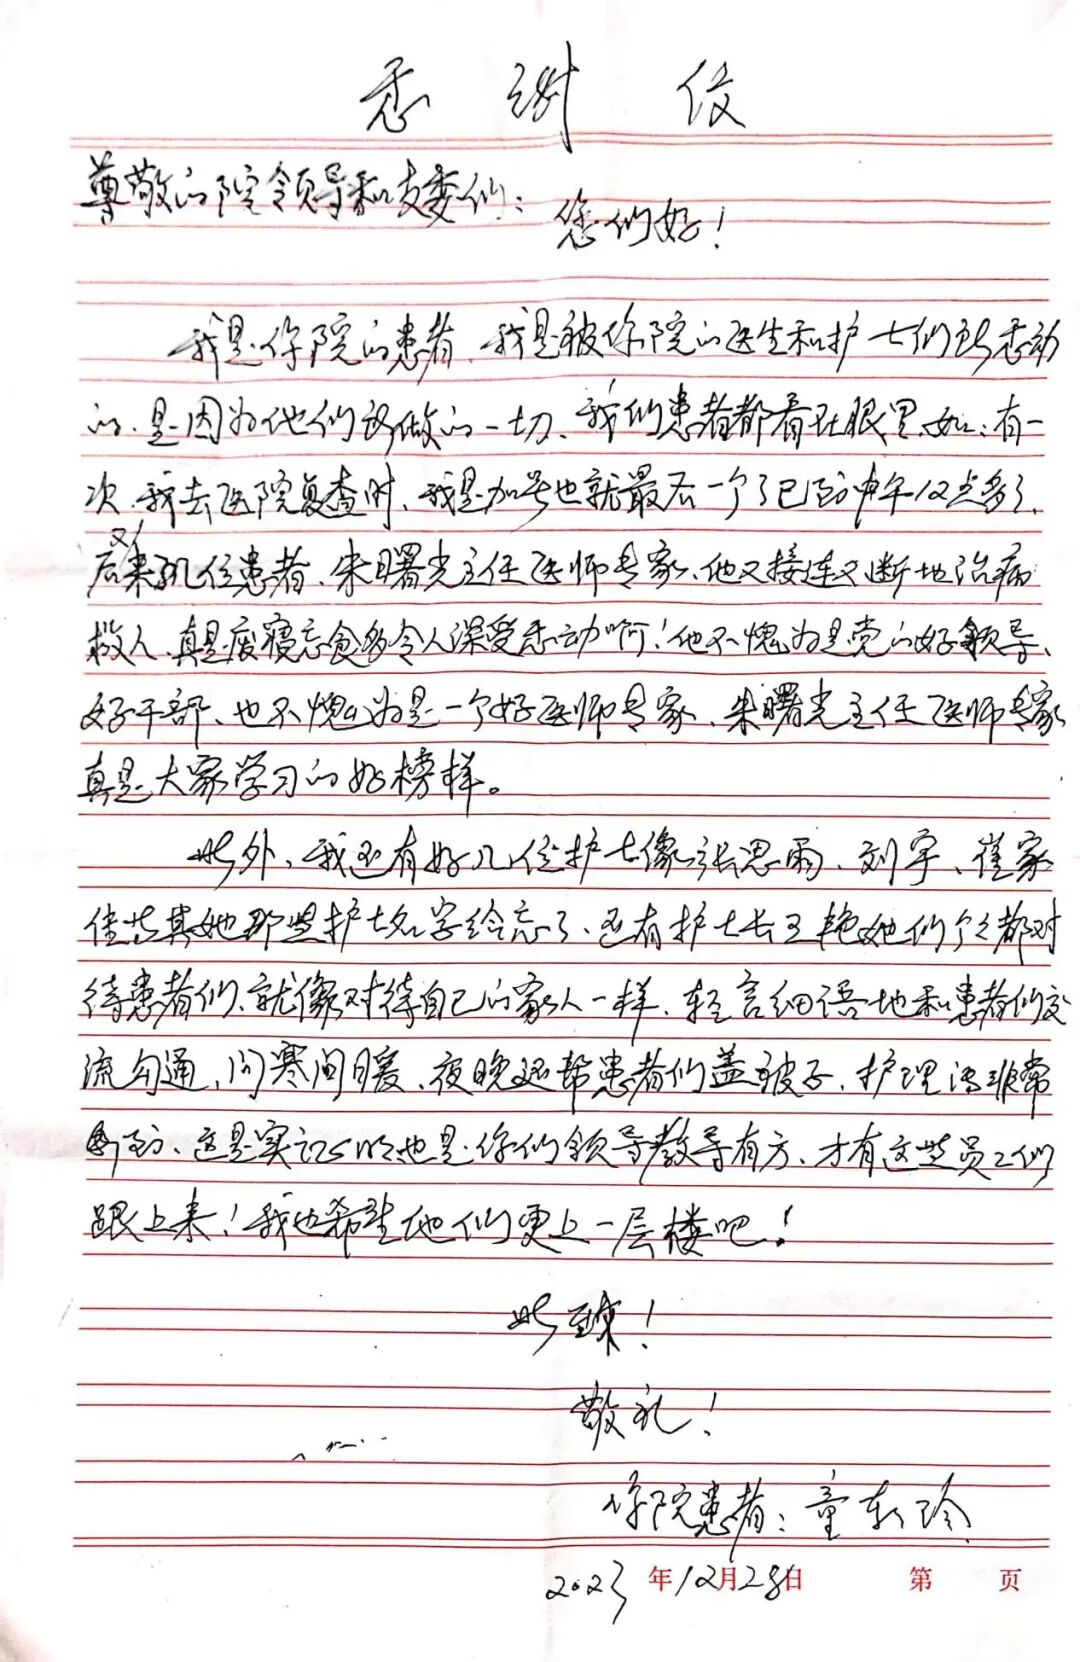 感谢信
尊敬的院领导和支委们：
您们好！
我是你院的患者、我是被你院的医生和护士们所感动
的、是因为他们所做的一切、我们患者都看在眼里、如：有一
次、我去医院复查时、我是加号也就最后一个了已到中午12点多了、
后又来几位患者、朱曙光主任医师专家、他又接连又断地治病
救人、真是废寝忘食多令人深受感动啊！他不愧为是党的好领导、
好干部、也不愧为是一个好医师专家、朱曙光主任医师专家
真是大家学习的好榜样。
此外、我还有好几位护士像张思雨、刘宇、崔家
佳等其她那些护士名字给忘了、还有护士长王艳她们个个都对
待患者们、就像对待自己的家人一样、轻言细语地和患者们交
流勾通、问寒问暖、夜晚还帮患者们盖被子、护理得非常
周到、这是实证明也是你们领导教导有方、才有这些员工们
跟上来！我也希望他们更上一层楼吧！
此致！
敬礼！
你院患者：童东玲
2023年12月28日 第 页